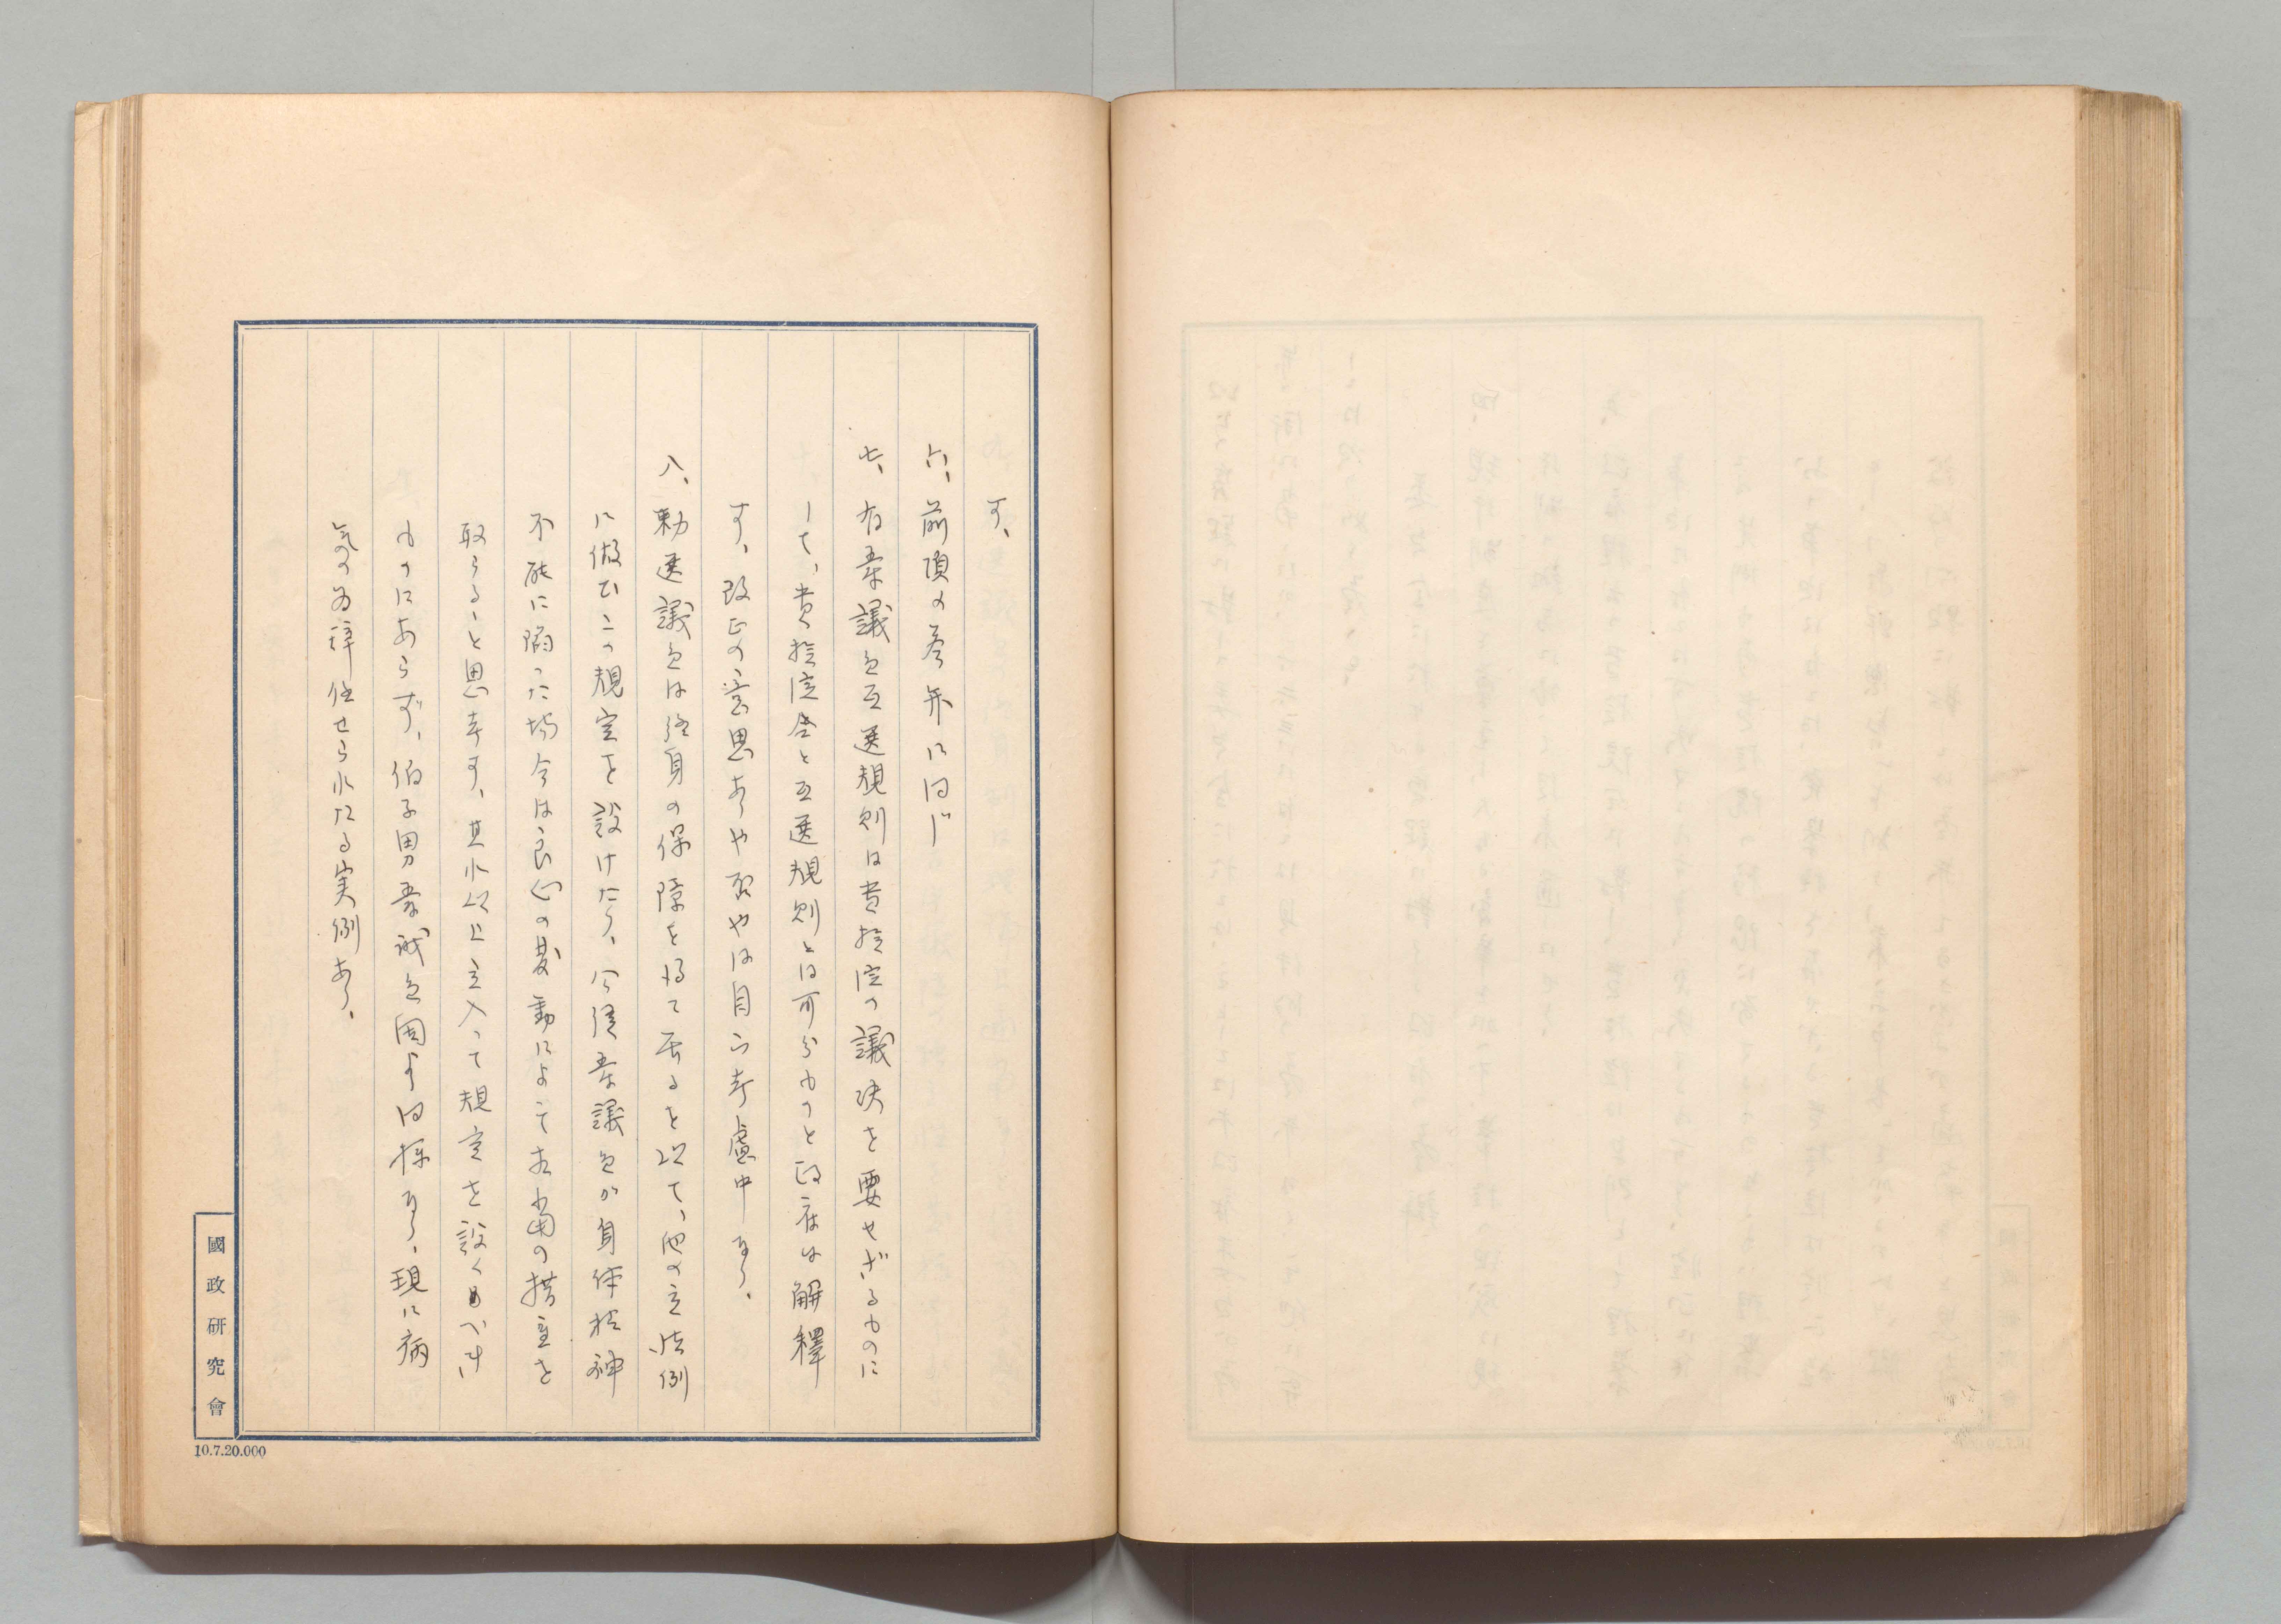 す、
六、前項の答弁に同じ
七、有爵議員互選規則は貴族院の議決を要せざるものに
して、貴族院令と互選規則とは可分ものと政府は解釋
す、改正の意思ありや否やは目下考慮中なり、
八、勅選議員は終身の保障を得て居るを以て、他の立法例
に倣ひこの規定を設けたり、今後若議員が身体精神
不能に陥った場合は良心の発動によって相当の措置を
取らるゝと思ます、其れ以上立入って規定を設くべき
ものにあらず、伯子男爵議員固より同様なり、現に病
気の為辞任せられたる実例あり、
國政研究會
10.7.20.000